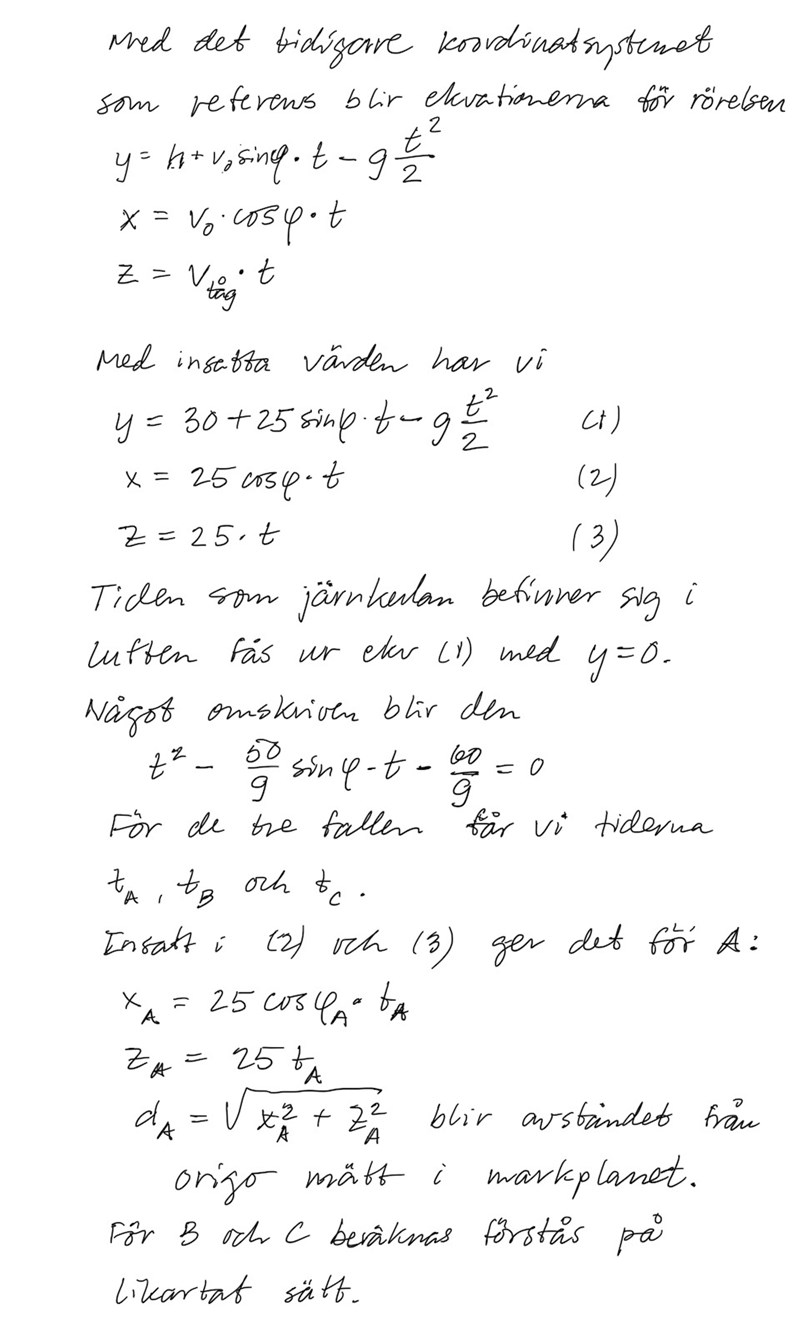 Med det tidigare koordinatsystemet
som referens blir ekvationerna för rörelsen
y = h + v₀ sinφ · t − g t²/2
x = v₀ · cosφ · t
z = v_tåg · t
Med insatta värden har vi
y = 30 + 25 sinφ · t − g t²/2 (1)
x = 25 cosφ · t (2)
z = 25 · t (3)
Tiden som järnkulan befinner sig i
luften fås ur ekv (1) med y = 0.
Något omskriven blir den
t² − 50/g sinφ · t − 60/g = 0
För de tre fallen får vi tiderna
t_A, t_B och t_C.
Insatt i (2) och (3) ger det för A:
x_A = 25 cosφ_A · t_A
z_A = 25 t_A
d_A = √(x_A² + z_A²) blir avståndet från
origo mätt i markplanet.
För B och C beräknas förstås på
likartat sätt.